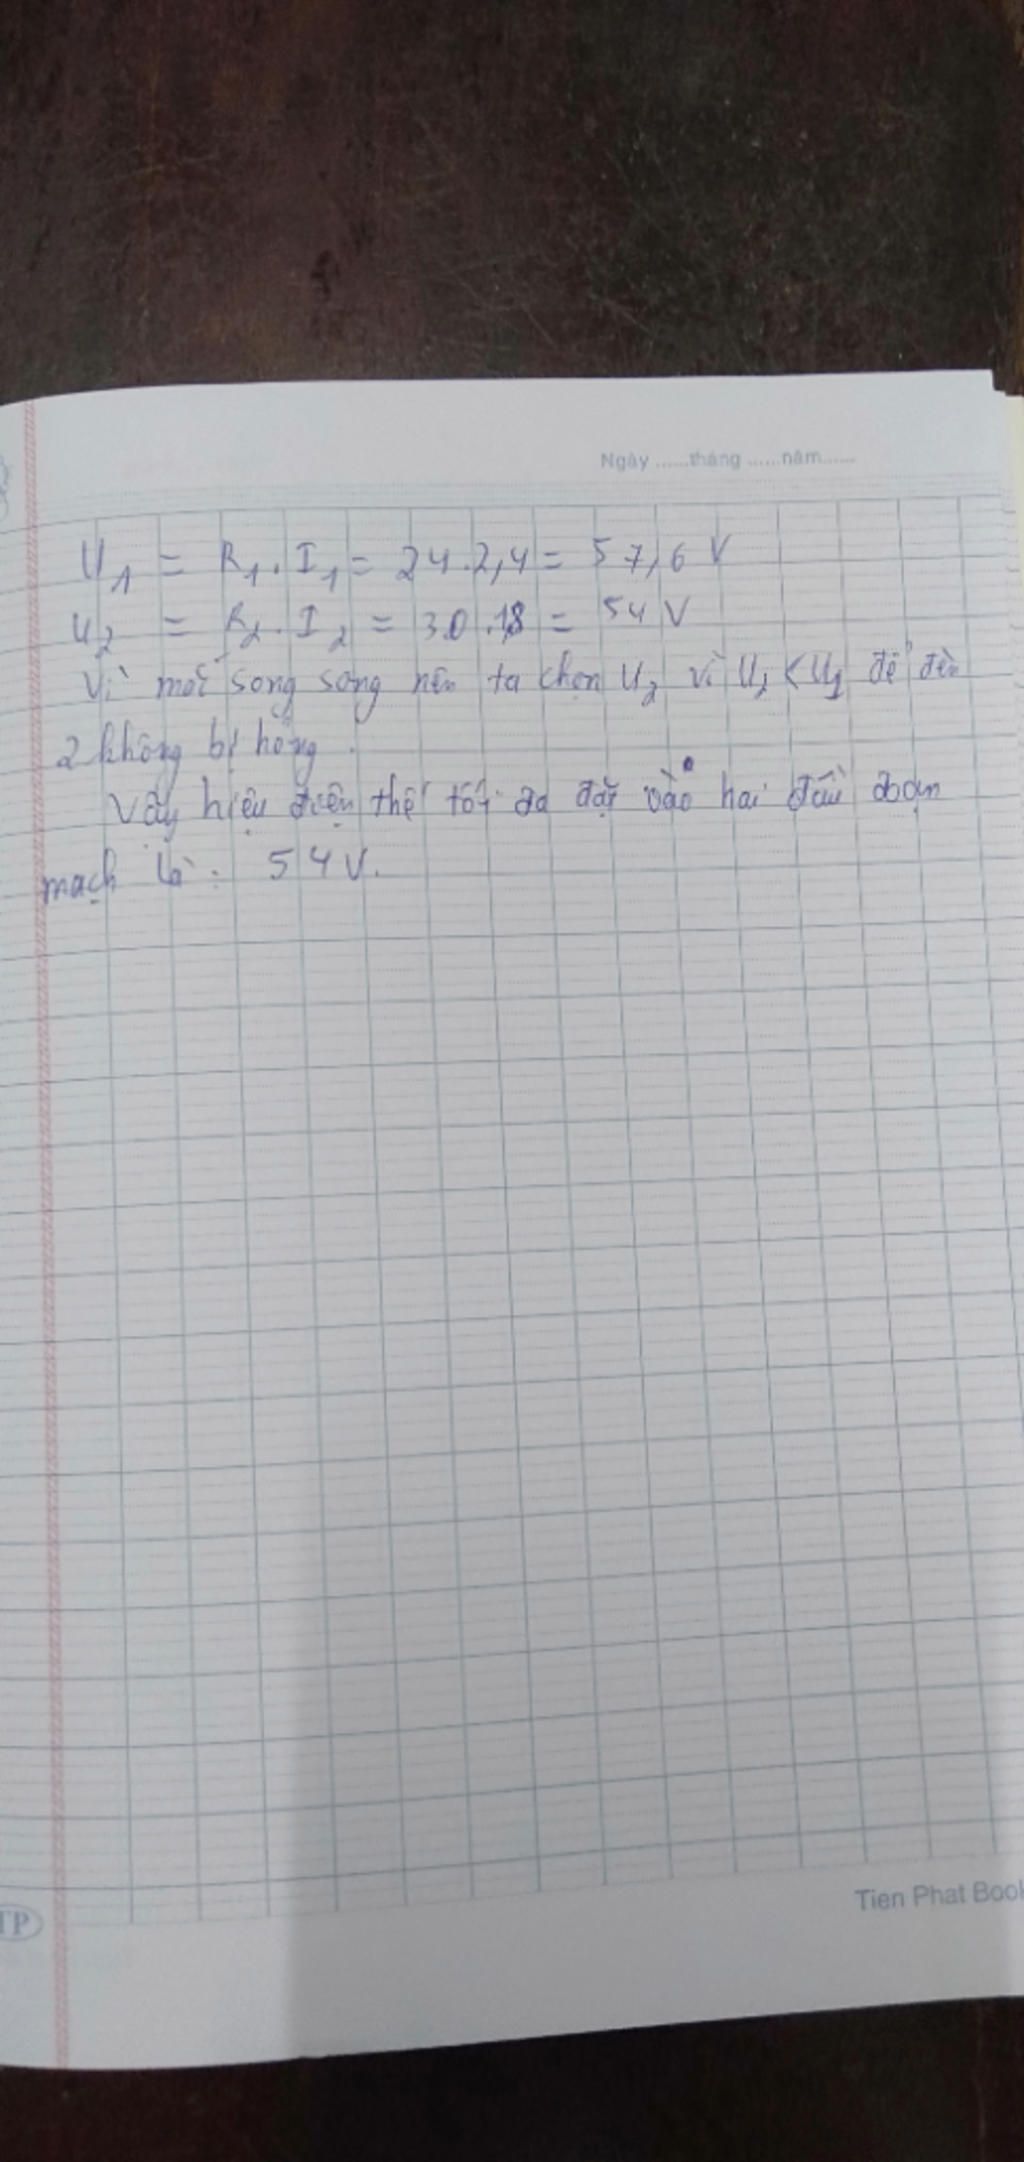 Ngày ......tháng ......năm......
U1 = R1. I1 = 24.2,4 = 57,6 V
U2 = R2. I2 = 30.1,8 = 54 V
Vì mắc song song nên ta chọn U2 vì U2 < U1 để đèn
2 không bị hỏng.
Vậy hiệu điện thế tối đa đặt vào hai đầu đoạn
mạch là: 54V.
TP
Tien Phat Book